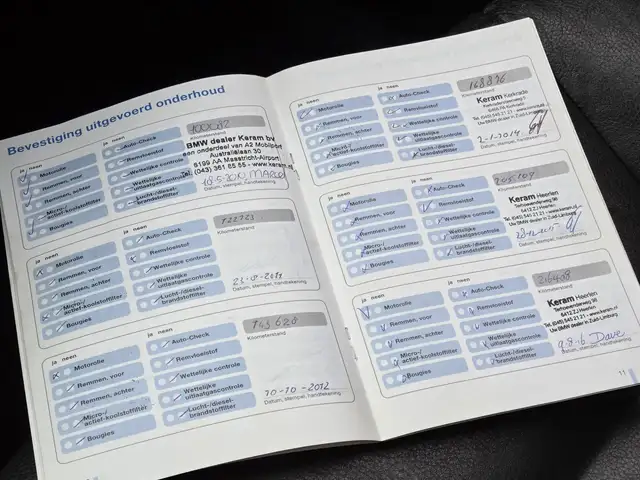 Bevestiging uitgevoerd onderhoud
ja neen
Motorolie
Remmen, voor
Remmen, achter
Micro-/
actief-koolstoffilter
Bougies
ja neen
Auto-Check
Remvloeistof
Wettelijke
uitlaatgascontrole
Lucht-/diesel-
brandstoffilter
Kilometerstand
BMW dealer Keram bv
een onderdeel van A2 Mobiliteit
Australielaan 30
6199 AA Maastricht-Airport
(043) 361 65 55 - www.keram.nl
Datum, stempel, handtekening
ja neen
Motorolie
Remmen, voor
Remmen, achter
Micro-/
actief-koolstoffilter
Bougies
ja neen
Auto-Check
Remvloeistof
Wettelijke
uitlaatgascontrole
Lucht-/diesel-
brandstoffilter
Kilometerstand
Datum, stempel, handtekening
ja neen
Motorolie
Remmen, voor
Remmen, achter
Micro-/
actief-koolstoffilter
Bougies
ja neen
Auto-Check
Remvloeistof
Wettelijke
uitlaatgascontrole
Lucht-/diesel-
brandstoffilter
Kilometerstand
10-10-2012
Datum, stempel, handtekening
ja neen
Motorolie
Remmen, voor
Remmen, achter
Micro-/
actief-koolstoffilter
Bougies
ja neen
Auto-Check
Remvloeistof
Wettelijke
uitlaatgascontrole
Lucht-/diesel-
brandstoffilter
Kilometerstand
Keram Kerkrade
2-1-2014
Datum, stempel, handtekening
ja neen
Motorolie
Remmen, voor
Remmen, achter
Micro-/
actief-koolstoffilter
Bougies
ja neen
Auto-Check
Remvloeistof
Wettelijke
uitlaatgascontrole
Lucht-/diesel-
brandstoffilter
Kilometerstand
Keram Heerlen
Tel. (045) 545 21 21 - www.keram.nl
Uw BMW dealer in Zuid-Limburg
Datum, stempel, handtekening
ja neen
Motorolie
Remmen, voor
Remmen, achter
Micro-/
actief-koolstoffilter
Bougies
ja neen
Auto-Check
Remvloeistof
Wettelijke
uitlaatgascontrole
Lucht-/diesel-
brandstoffilter
Kilometerstand
Keram Heerlen
Tel. (045) 545 21 21 - www.keram.nl
Uw BMW dealer in Zuid-Limburg
9-8-16 Dave
Datum, stempel, handtekening
11